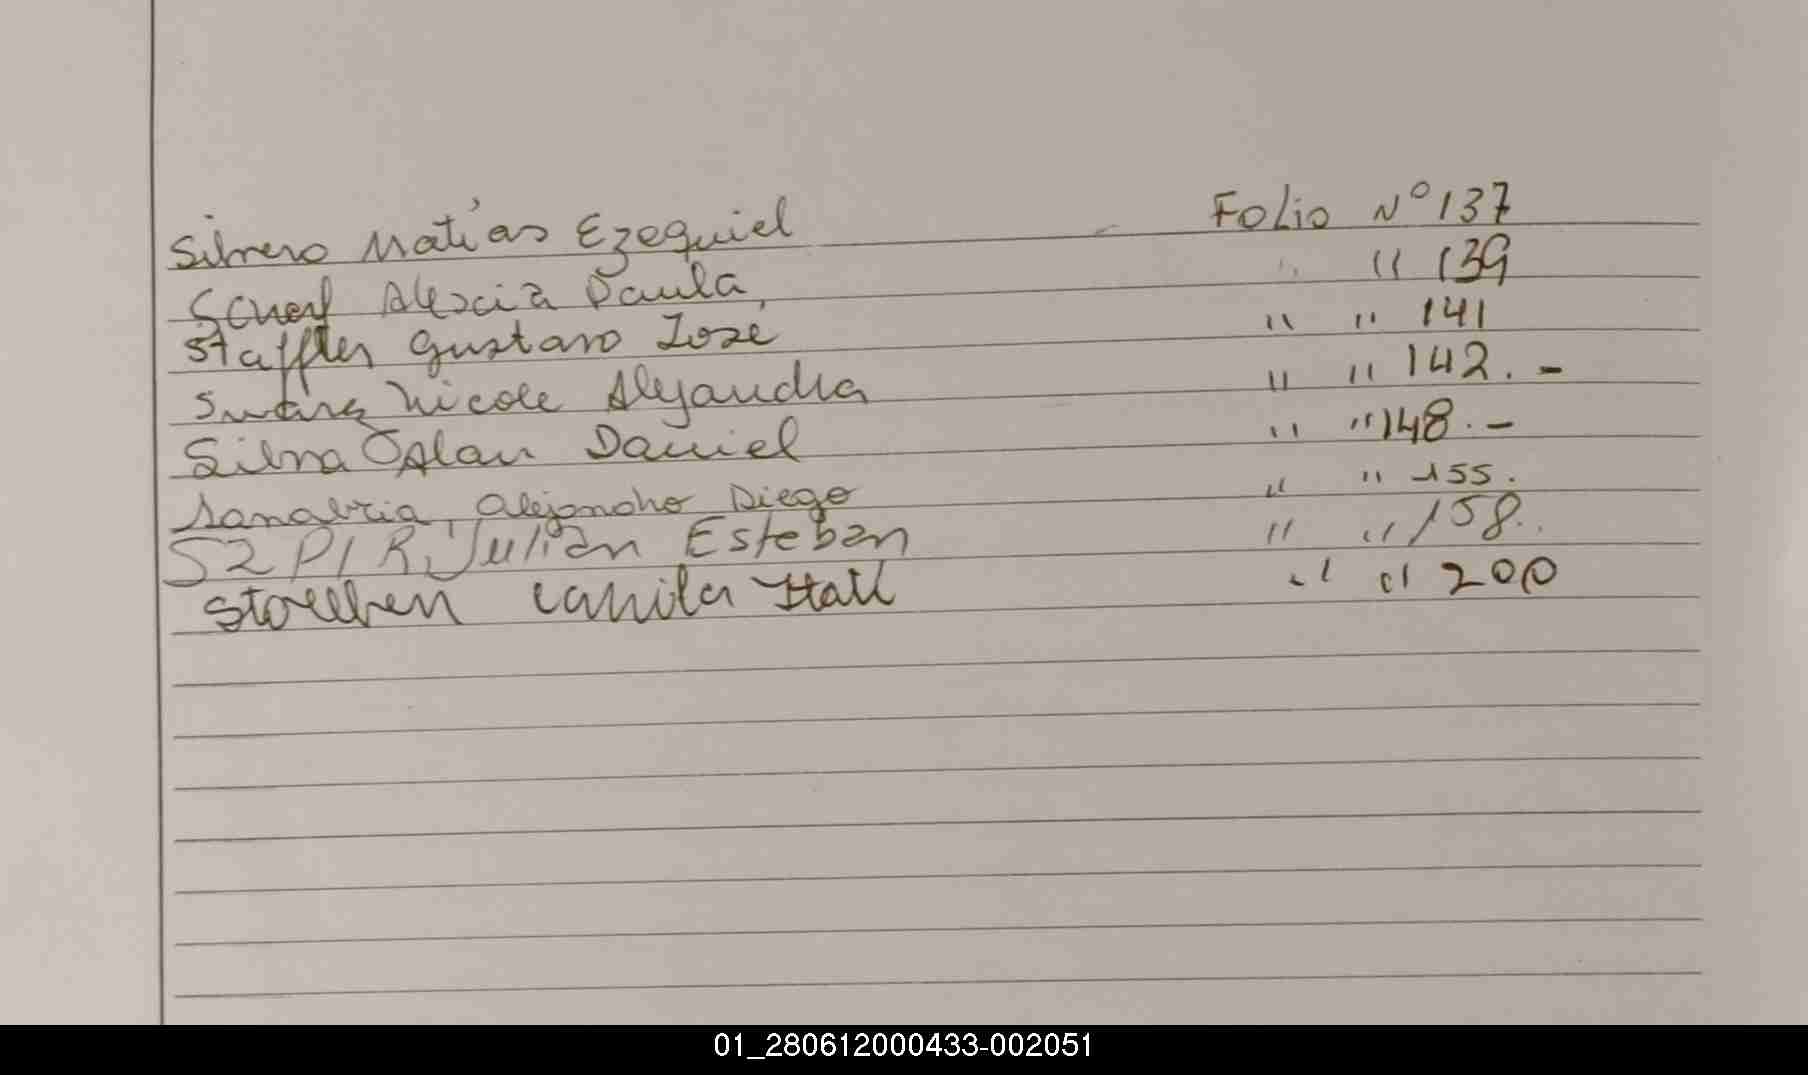 Silvero Matías Ezequiel Folio Nº 137
Scherf Alexia Paula, " " 139
Staffler Gustavo José " " 141
Suarez Nicole Alejandra " " 142. -
Silva Alan Daniel " " 148. -
Sanabria, Alejandro Diego " " 155.
SZPIR, Julián Esteban " " 158.
Camila " " 200
01_280612000433-002051